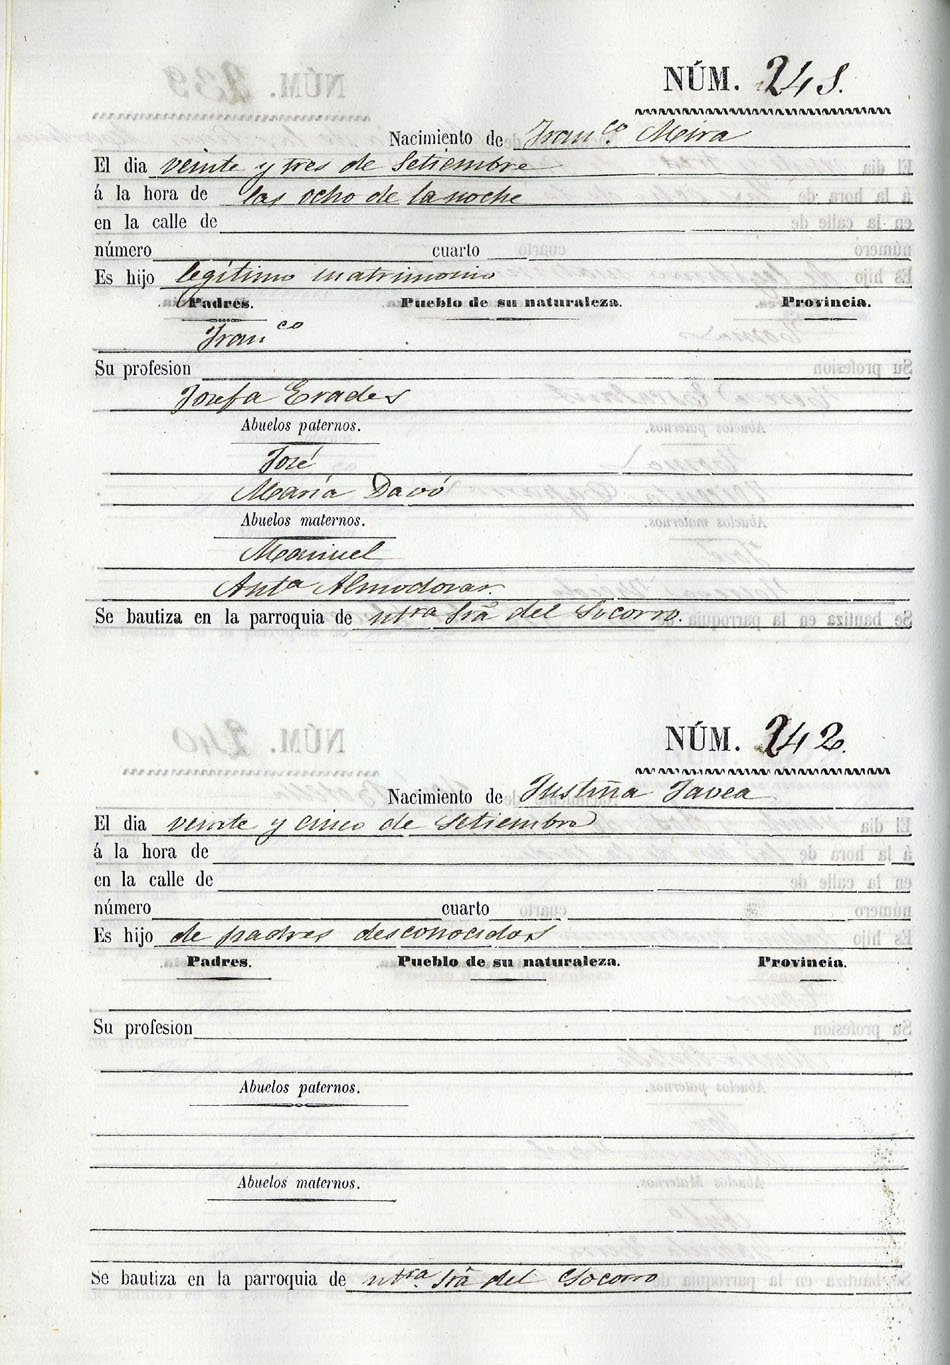 NÚM. 241.
Nacimiento de Fran.co Meira
El dia veinte y tres de Setiembre
á la hora de las ocho de la noche
en la calle de
número cuarto
Es hijo legítimo matrimonio
Padres. Pueblo de su naturaleza. Provincia.
Franco
Su profesion
Josefa Erades
Abuelos paternos.
José
María Davó
Abuelos maternos.
Manuel
Anta Almodovar.
Se bautiza en la parroquia de ntra Srã del Socorro.
NÚM. 242.
Nacimiento de Justina Javea
El dia veinte y cinco de Setiembre
á la hora de
en la calle de
número cuarto
Es hijo de padres desconocidos
Padres. Pueblo de su naturaleza. Provincia.
Su profesion
Abuelos paternos.
Abuelos maternos.
Se bautiza en la parroquia de ntra Srã del Socorro